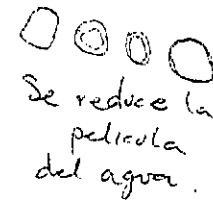 Se reduce la
pelicula
del agua.